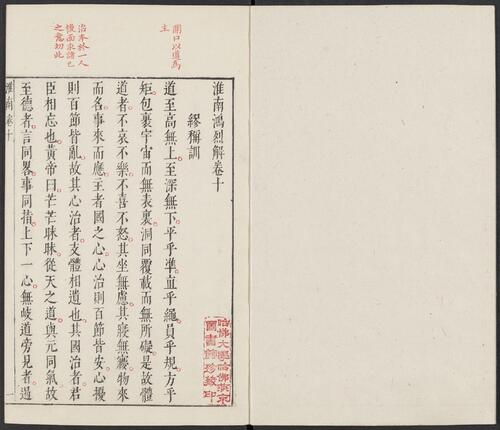 淮南鴻烈解卷十
繆稱訓
道至高無上至深無下平乎準直乎繩員乎規方乎
矩包裹宇宙而無表裏洞同覆載而無所礙是故體
道者不哀不樂不喜不怒其坐無慮其寢無夢物來
而名事來而應主者國之心心治則百節皆安心擾
則百節皆亂故其心治者支體相遺也其國治者君
臣相忘也黃帝曰芒芒昧昧從天之道與元同氣故
至德者言同畧事同指上下一心無岐道旁見者遏
淮南卷十
一
開口以道爲
主
治本於一人
後面求諸己
之意切此
哈佛大學哈佛燕京
圖書館珍藏印